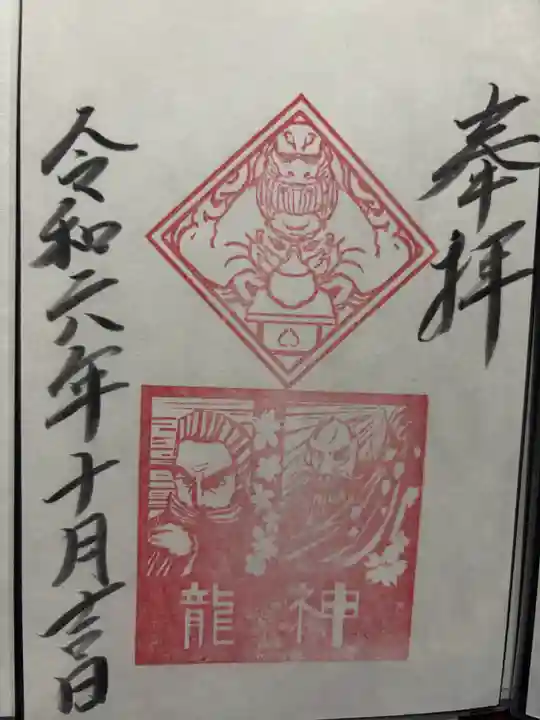 奉拝
神龍
令和六年十月吉日